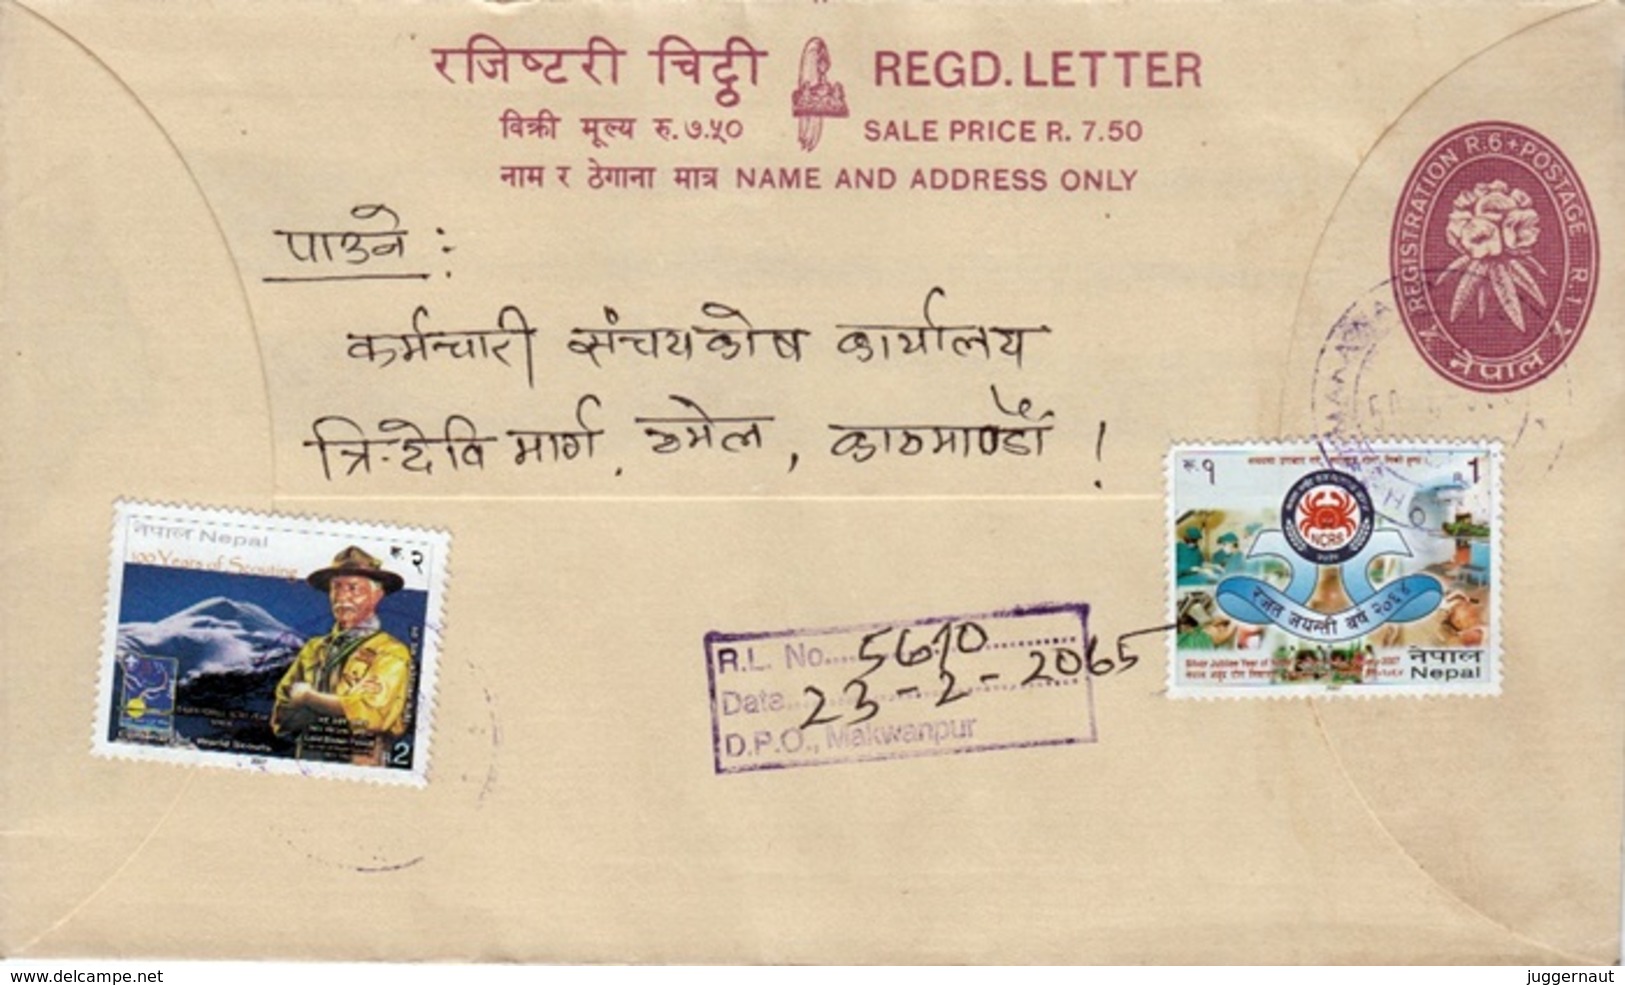 रजिष्टरी चिट्ठी REGD. LETTER
विक्री मूल्य रु. ७.५० SALE PRICE R. 7.50
नाम र ठेगाना मात्र NAME AND ADDRESS ONLY
REGISTRATION R.6+POSTAGE R.1
नेपाल
पाउने :
कर्मचारी संचयकोष कार्यालय
त्रि-देवि मार्ग, ठमेल, काठमाण्डौं !
रु. १ R 1
NCRS
रजत जयन्ती वर्ष २०६४
Silver Jubilee Year of
नेपाल
Nepal
नेपाल Nepal
रु. २
100 Years of Scouting
2
R.L. No. 5610
Date 23-2-2065
D.P.O., Makwanpur
www.delcampe.net
juggernaut